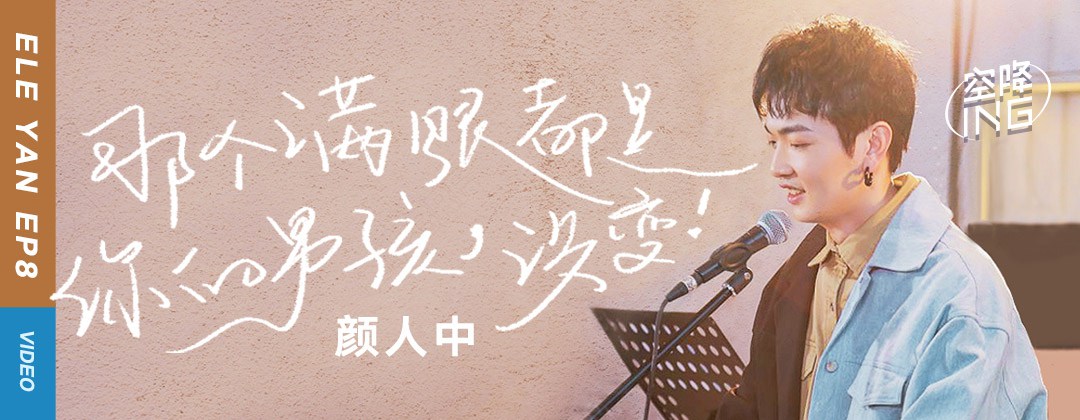 ELE YAN EP8
VIDEO
那个满眼都是
你的男孩,没变!
颜人中
空降
ING